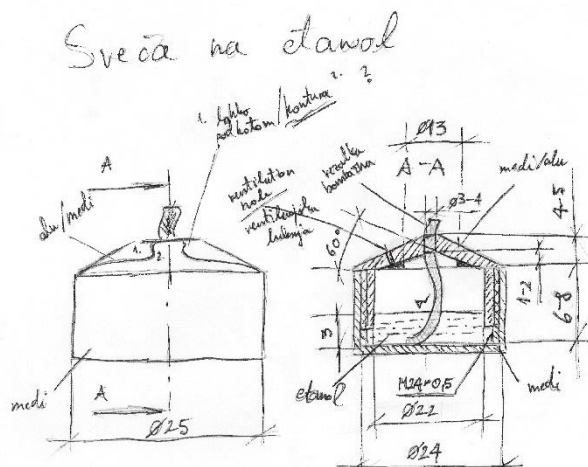 Sveča na etanol
1. lahko
pod kotom/kontura 2. ?
A
alu/medi
1.
2.
medi
A
Ø25
Ø13
A-A
ventilation
hole
ventilacijska
luknja
bombažna
Ø3-4
medi/alu
60°
4-5
1-2
6-8
3
etanol
M24×0,5
medi
Ø22
Ø24